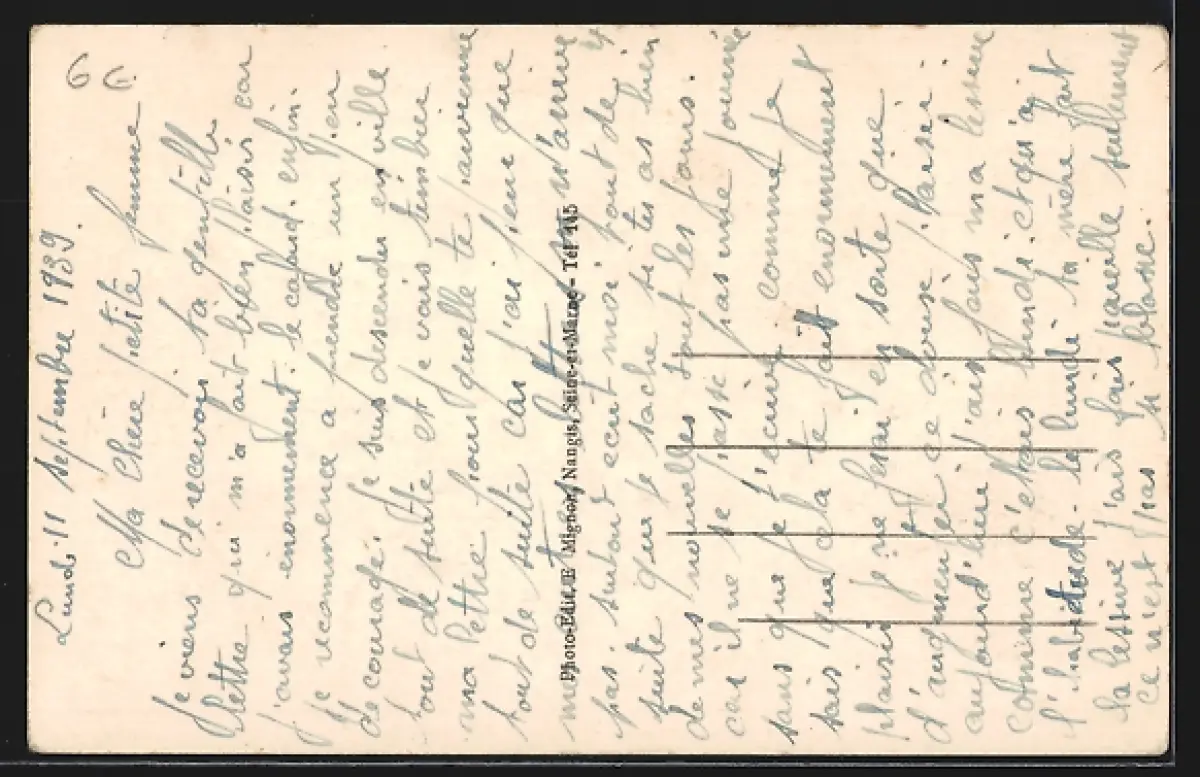 6
Lundi 11 septembre 1939.
Ma chère petite femme
Je viens de recevoir ta gentille
lettre qui m'a fait bien plaisir car
j'avais enormement le cafard. enfin
je recommence a prendre un peu
de courage. Je suis descendu en ville
tout de suite et je vais tenvoier
ma lettre pour quelle te parvienne
tout de suite car j'ai peur que
mes lettres ne t'arrive
pas. surtout ecrit moi tout de
suite que je sache si tu as bien
de mes nouvelles tout les jours.
car il ne se passe pas une journée
sans que je t'ecrive comme je
sais que cela te fait enormement
plaisir je ferai en sorte que
d'augmenter ce doux plaisir.
aujourd'hui j'ais fais ma lessive
comme c'étais lundi et qu'a
l'habitude le lundi ta mère fait
la lessive j'ais fais pareille seulement
ce n'est pas si blanc.
Photo-Edit. E. Mignon, Nangis, Seine-et-Marne - Tél 145